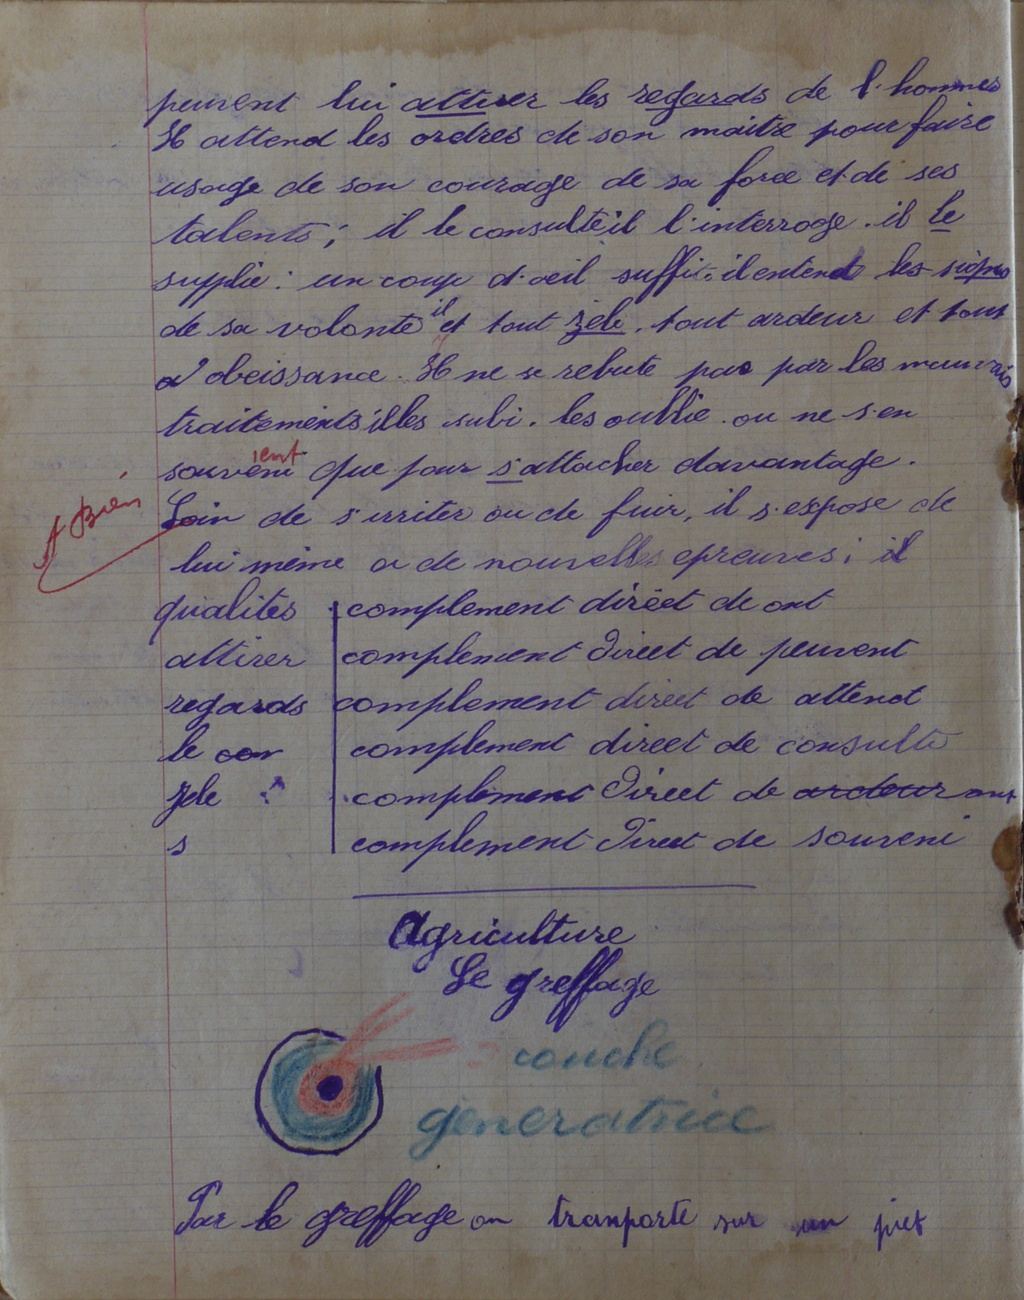 peuvent lui attirer les regards de l'hommes
Il attend les ordres de son maitre pour faire
usage de son courage de sa force et de ses
talents; il le consulte il l'interroge. il le
supplie: un coup d'oeil suffit, il entend les signes
de sa volonté il et tout zèle, tout ardeur et tout
d'obeissance. Il ne se rebute pas par les mauvais
traitements il les subi. les oublie ou ne s'en
souvenient que pour s'attacher davantage.
A Bien
Loin de s'irriter ou de fuir, il s'expose de
lui même a de nouvelles epreuves; il
qualites complement direct de ont
attirer complement direct de peuvent
regards complement direct de attend
le con complement direct de consulte
zele complement direct de ardeur ont
s complement direct de souveni
Agriculture
Le greffage
couche
generatrice
Par le greffage on tranporte sur un